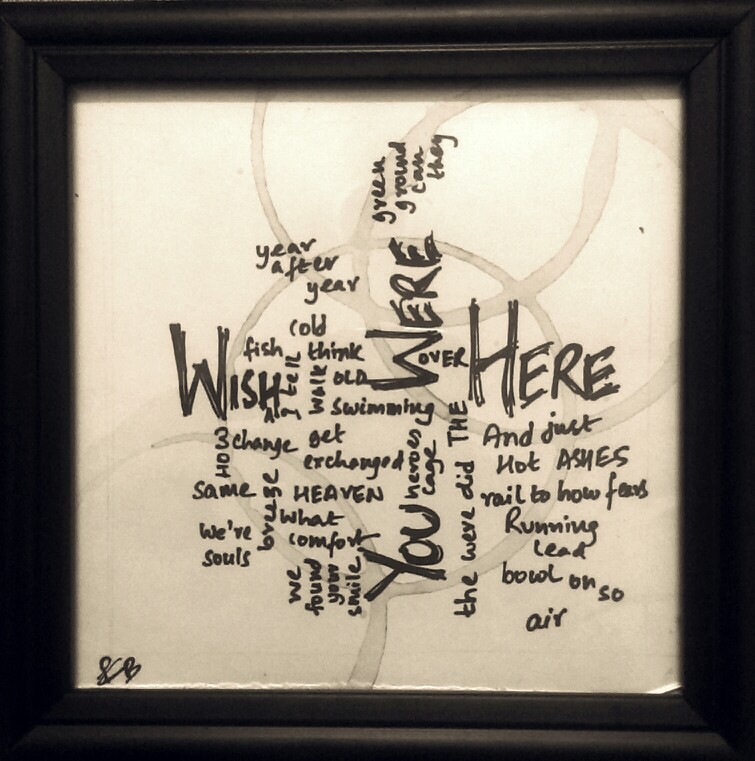 green
ground
can
they
year
after
year
WERE
cold
fish think
tell
walk
OLD
OVER
WISH
HERE
I
A
swimming
THE
HOW
change get
exchanged
heroes
cage
And just
Hot ASHES
same HEAVEN
did
rail to how fears
breeze
what
comfort
We're
souls
YOU
were
Running
lead
we
found
your
smile
the
bowl on so
air
SCB